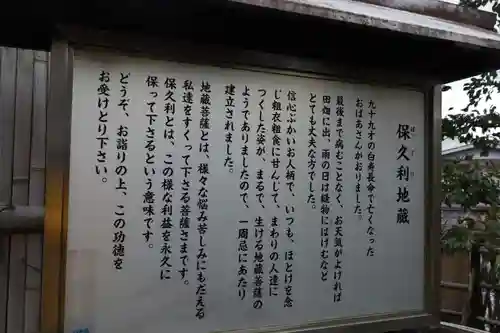 保久利地蔵
ほくり
九十九才の白寿長命で亡くなった
おばあさんがおりました。
最後まで病むことなく、お天気がよければ
田畑に出、雨の日は縫物にはげむなど
とても丈夫な方でした。
信心ぶかいお人柄で、いつも、ほとけを念
じ粗衣粗食に甘んじて、まわりの人達に
つくした姿が、まるで、生ける地蔵菩薩の
ようでありましたので、一周忌にあたり
建立されました。
地蔵菩薩とは、様々な悩み苦しみにもだえる
私達をすくって下さる菩薩さまです。
保久利とは、この様な利益を永久に
保って下さるという意味です。
どうぞ、お詣りの上、この功徳を
お受けとり下さい。